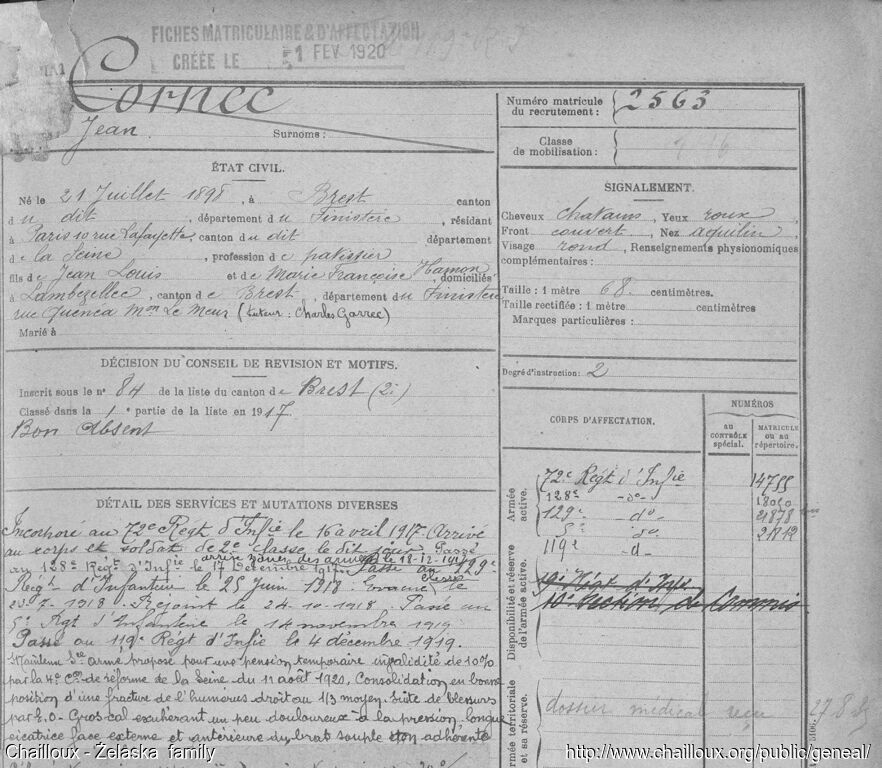 FICHES MATRICULAIRE & D'AFFECTATION
CRÉÉE LE 1 FEV 1920
Cornec
Jean
Surnoms :
ÉTAT CIVIL.
Né le 21 Juillet 1898, à Brest canton
du dit, département du Finistère, résidant
à Paris 10 rue Lafayette, canton du dit département
de la Seine, profession de patissier
fils de Jean Louis et de Marie Françoise Hamon, domiciliés
à Lambezellec, canton de Brest, département du Finistère
rue Quenca Mon Le Meur (tuteur : Charles Garrec)
Marié à
DÉCISION DU CONSEIL DE REVISION ET MOTIFS.
Inscrit sous le n° 84 de la liste du canton de Brest (2e)
Classé dans la 1e partie de la liste en 1917
Bon Absent
DÉTAIL DES SERVICES ET MUTATIONS DIVERSES
Incorporé au 72e Régt d'Infie le 16 avril 1917. Arrivé
au corps et soldat de 2e classe le dit jour. Passé
arrivé zones des armées le 18-12-1917
au 128e Régt d'Infie le 17 Décembre 1917. Passé au 129e
Régt d'Infanterie le 25 juin 1918. Evacué blessé le
7 - 1918. Rejoint le 24-10-1918. Passé au
5e Rgt d'Infanterie le 14 novembre 1919
Passé au 119e Régt d'Infie le 4 décembre 1919.
Maintenu Sce armé proposé pour une pension temporaire invalidité de 10%
par la 4e Con de réforme de la Seine du 11 août 1920, Consolidation en bonne
position d'une fracture de l'humérus droit au 1/3 moyen. Suite de blessure
par E.O - Gros cal exubérant un peu douloureux à la pression, longue
cicatrice face externe et antérieure du bras souple non adhérente
Numéro matricule du recrutement : 2563
Classe de mobilisation :
SIGNALEMENT.
Cheveux chatains, Yeux roux
Front couvert, Nez aquilin
Visage rond, Renseignements physionomiques
complémentaires :
Taille : 1 mètre 68 centimètres.
Taille rectifiée : 1 mètre centimètres
Marques particulières :
Degré d'instruction : 2
CORPS D'AFFECTATION.
NUMÉROS
AU CONTRÔLE spécial.
MATRICULE OU AU répertoire.
Armée active.
72e Régt d'Infie 14755
128e -do-
129e -do- 21878
5e do 21812
119e -d-
Disponibilité et réserve de l'armée active.
Régt d'Infie
Section de Commis
Armée territoriale et sa réserve.
dossier médical reçu 27.8
Chailloux - Zelaska family
http://www.chailloux.org/public/geneal/